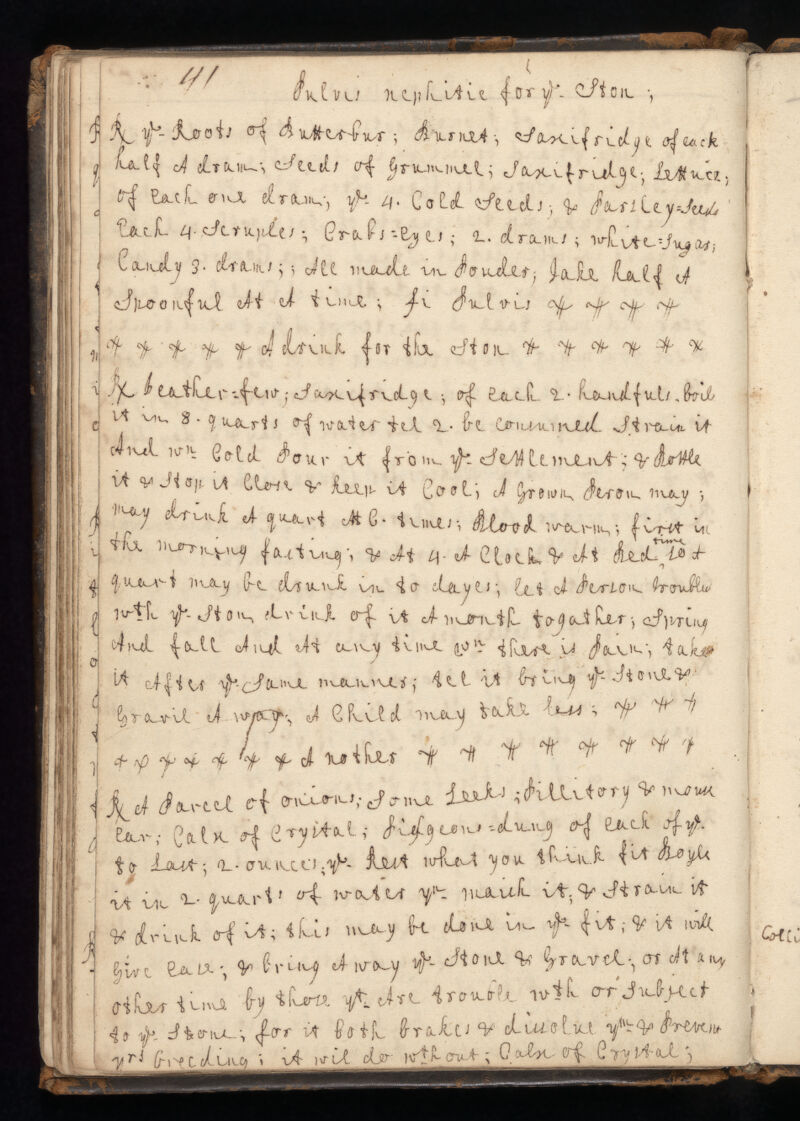 41
Pulvis nephitie for ye Ston ;
Rx ye Roots of Butterbur ; Burnet ; Saxifridge of each
half A dram ; Seeds of Grummel ; Saxifridge ; Lettuce ;
of Each one dram ; ye 4. Cold Seeds ; & Parsley=Seeds
Each 4. Scruples ; Crabs=Eyes ; 2. drams ; white=Sugar ;
Candy 3. drams ; ; All made in Pouder ; Take half A
Spoonful At A time ; fi Pulvis
A drink for the Ston
Rx feather=few ; Saxifridge ; of each 2. handfuls . boil
it in 8. quarts of water tel 2. be consumed Strain it
And wn Cold Pour it from ye Settlement ; & Bottle
it & Stop it Close & keep it Cool ; A Grown Person may ;
may drink A quart At 6. times ; Blood warm ; first in
the morning fasting ; & At 4. A Clock & At Bed time, so A
quart may be drunk in to dayes ; let A Person troubled
wth ye Ston drink of it A month togather ; Spring
And fall And At any time wn there is Pain ; take
it After ye Same manner ; tel it bring ye Stone &
Gravil A way ; A Child may take less ;
A nother
Rx A Parcel of onions ; Some Leeks ; Pillitory & mous
Ear ; Calx of Crystal ; Pidgeons=dung of each of ye
to Last ; 2. ounces ; ye Rest what you think fit Boyle
it in 2. quarts of water yn maish it ; & Strain it
& drink of it ; this may be done in ye fit ; & it will
Give Ease ; & bring A way ye Stone & Gravel ; or At any
other time by those yt Are trouble wth or Subject
to ye Stone ; for it both brakes & dissolve ym & Prevent
yrs breeding ; it wil do wthout ; Calx of Crystal ;